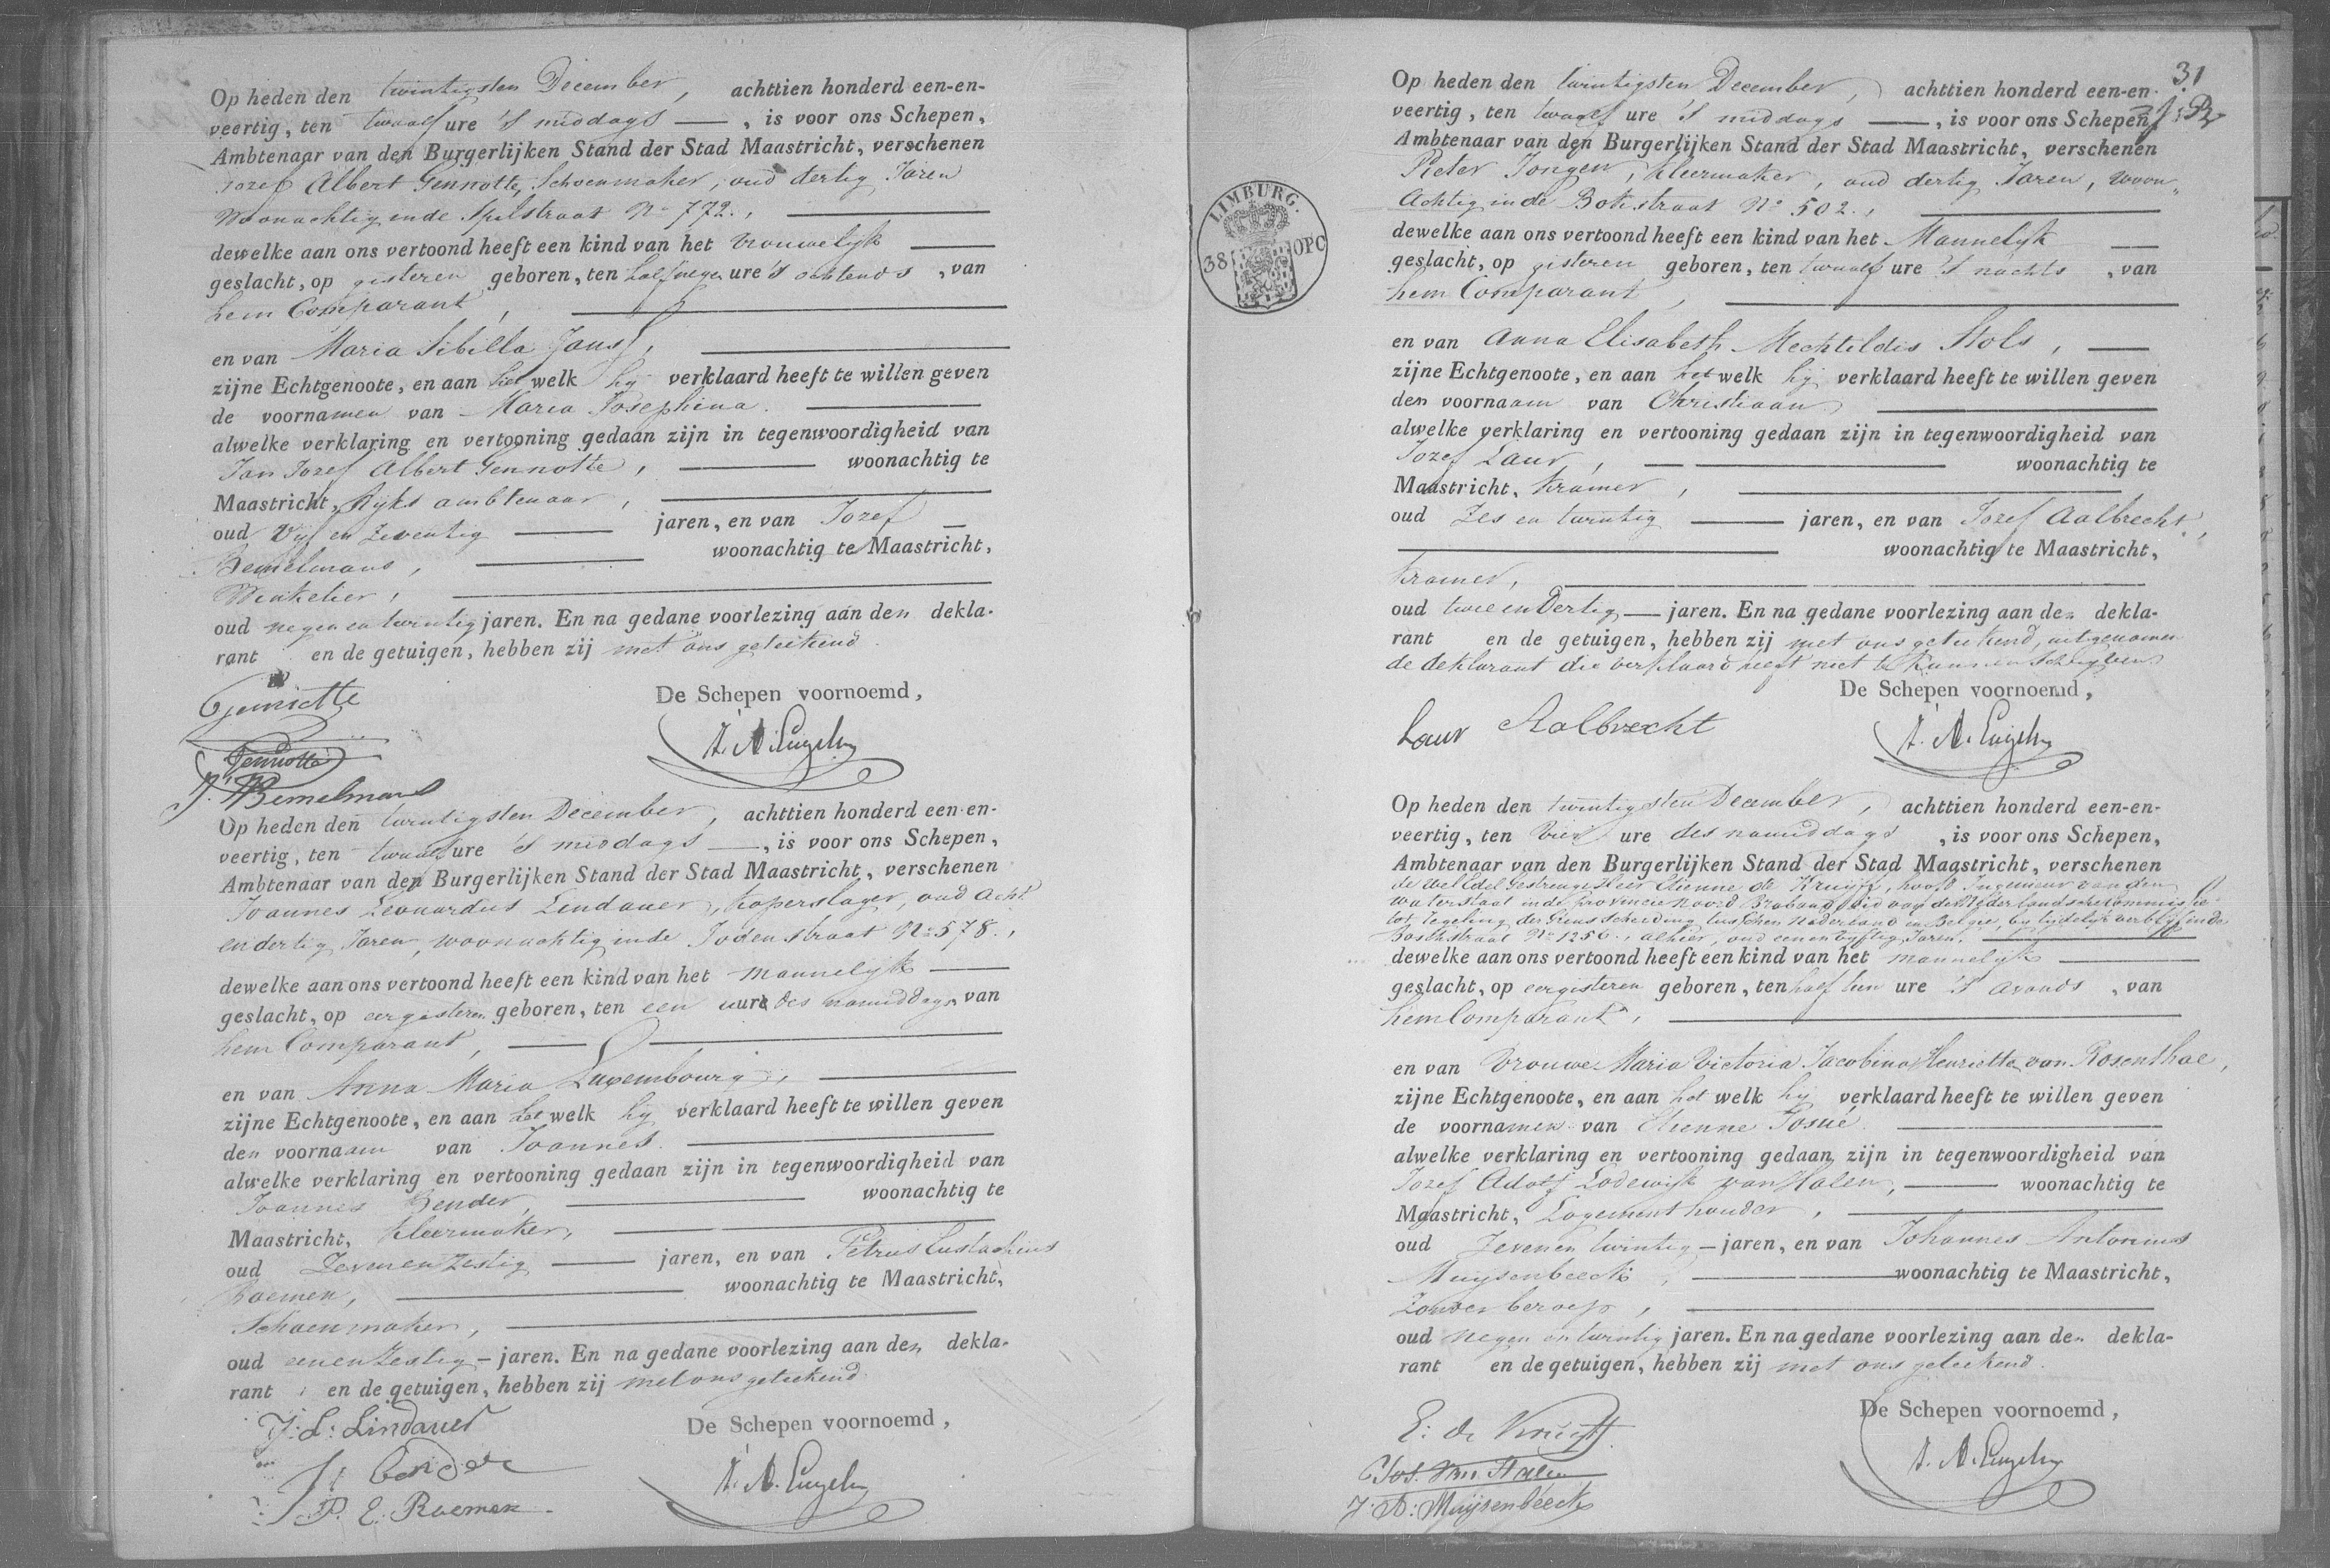 Op heden den twintigsten December, achttien honderd een-en-
veertig, ten twaalf ure 's middags —, is voor ons Schepen,
Ambtenaar van den Burgerlijken Stand der Stad Maastricht, verschenen
Jozef Albert Gennotte, Schoenmaker, oud dertig Jaren
Woonachtig in de Spilstraat No 772.,
dewelke aan ons vertoond heeft een kind van het Vrouwelijk
geslacht, op gisteren geboren, ten half negen ure 's ochtends, van
hem Comparant,
en van Maria Sibilla Jans,
zijne Echtgenoote, en aan het welk hij verklaard heeft te willen geven
de voornamen van Maria Josephina.
alwelke verklaring en vertooning gedaan zijn in tegenwoordigheid van
Jan Jozef Albert Gennotte, woonachtig te
Maastricht, Rijks ambtenaar,
oud Vijf en Zeventig jaren, en van Jozef
Bemelmans, woonachtig te Maastricht,
Winkelier,
oud negen en twintig jaren. En na gedane voorlezing aan den dekla-
rant en de getuigen, hebben zij met ons geteekend.
De Schepen voornoemd,
Gennotte
Gennotte
J. Bemelmans
Op heden den twintigsten December, achttien honderd een-en-
veertig, ten twaalf ure 's middags —, is voor ons Schepen,
Ambtenaar van den Burgerlijken Stand der Stad Maastricht, verschenen
Joannes Leonardus Lindauer, koperslager, oud acht
en dertig Jaren, woonachtig in de Jodenstraat No 578.,
dewelke aan ons vertoond heeft een kind van het mannelijk
geslacht, op eergisteren geboren, ten een uure des namiddags, van
hem Comparant,
en van Anna Maria Luxembourg,
zijne Echtgenoote, en aan het welk hij verklaard heeft te willen geven
den voornaam van Joannes.
alwelke verklaring en vertooning gedaan zijn in tegenwoordigheid van
Joannes Bender, woonachtig te
Maastricht, kleermaker,
oud Zeven en Zestig jaren, en van Petrus Eustachius
Roemen, woonachtig te Maastricht,
Schoenmaker,
oud een en Zestig jaren. En na gedane voorlezing aan den dekla-
rant en de getuigen, hebben zij met ons geteekend.
De Schepen voornoemd,
J: L: Lindauer
J Bender
P. E. Roemen
31
LIMBURG.
38 OPC
Op heden den twintigsten December, achttien honderd een-en-
veertig, ten twaalf ure 's middags —, is voor ons Schepen,
Ambtenaar van den Burgerlijken Stand der Stad Maastricht, verschenen
Pieter Jongen, kleermaker, oud dertig Jaren, woon-
Achtig in de Botestraat No 502.,
dewelke aan ons vertoond heeft een kind van het Mannelijk
geslacht, op gisteren geboren, ten twaalf ure 's nachts, van
hem Comparant,
en van Anna Elisabeth Mechtildis Stols,
zijne Echtgenoote, en aan het welk hij verklaard heeft te willen geven
den voornaam van Christiaan
alwelke verklaring en vertooning gedaan zijn in tegenwoordigheid van
Jozef Laur, woonachtig te
Maastricht, kramer,
oud Zes en twintig jaren, en van Jozef Aalbrecht,
woonachtig te Maastricht,
kramer,
oud twee en Dertig jaren. En na gedane voorlezing aan den dekla-
rant en de getuigen, hebben zij met ons geteekend, uitgenomen
de deklarant die verklaard heeft niet te kunnen schrijven
De Schepen voornoemd,
Laur Aalbrecht
Op heden den twintigsten December, achttien honderd een-en-
veertig, ten Vier ure des namiddags, is voor ons Schepen,
Ambtenaar van den Burgerlijken Stand der Stad Maastricht, verschenen
de Wel Edel Gestrenge Heer Etienne de Kruijff, hoofd Ingenieur van den
waterstaat in de provincie Noord Braband, lid van de Nederlandsche kommissie
tot regeling der Grens scheiding tusschen Nederland en Belgie, bij tijdelijk verblijf in de
Boschstraat No 1256., alhier, oud een en vijftig Jaren.
dewelke aan ons vertoond heeft een kind van het mannelijk
geslacht, op eergisteren geboren, ten half tien ure 's avonds, van
hem Comparant,
en van Vrouwe Maria Victoria Jacobina Henriette van Rosenthal,
zijne Echtgenoote, en aan het welk hij verklaard heeft te willen geven
de voornamen van Etienne Josué.
alwelke verklaring en vertooning gedaan zijn in tegenwoordigheid van
Jozef Adolf Lodewijk van Halen, woonachtig te
Maastricht, Logement houder,
oud Zeven en twintig jaren, en van Johannes Antonius
Muijsenbeeck, woonachtig te Maastricht,
Zonder beroep,
oud negen en twintig jaren. En na gedane voorlezing aan den dekla-
rant en de getuigen, hebben zij met ons geteekend.
De Schepen voornoemd,
E: de Kruijff.
Jos. Van Halen
J: A: Muijsenbeeck